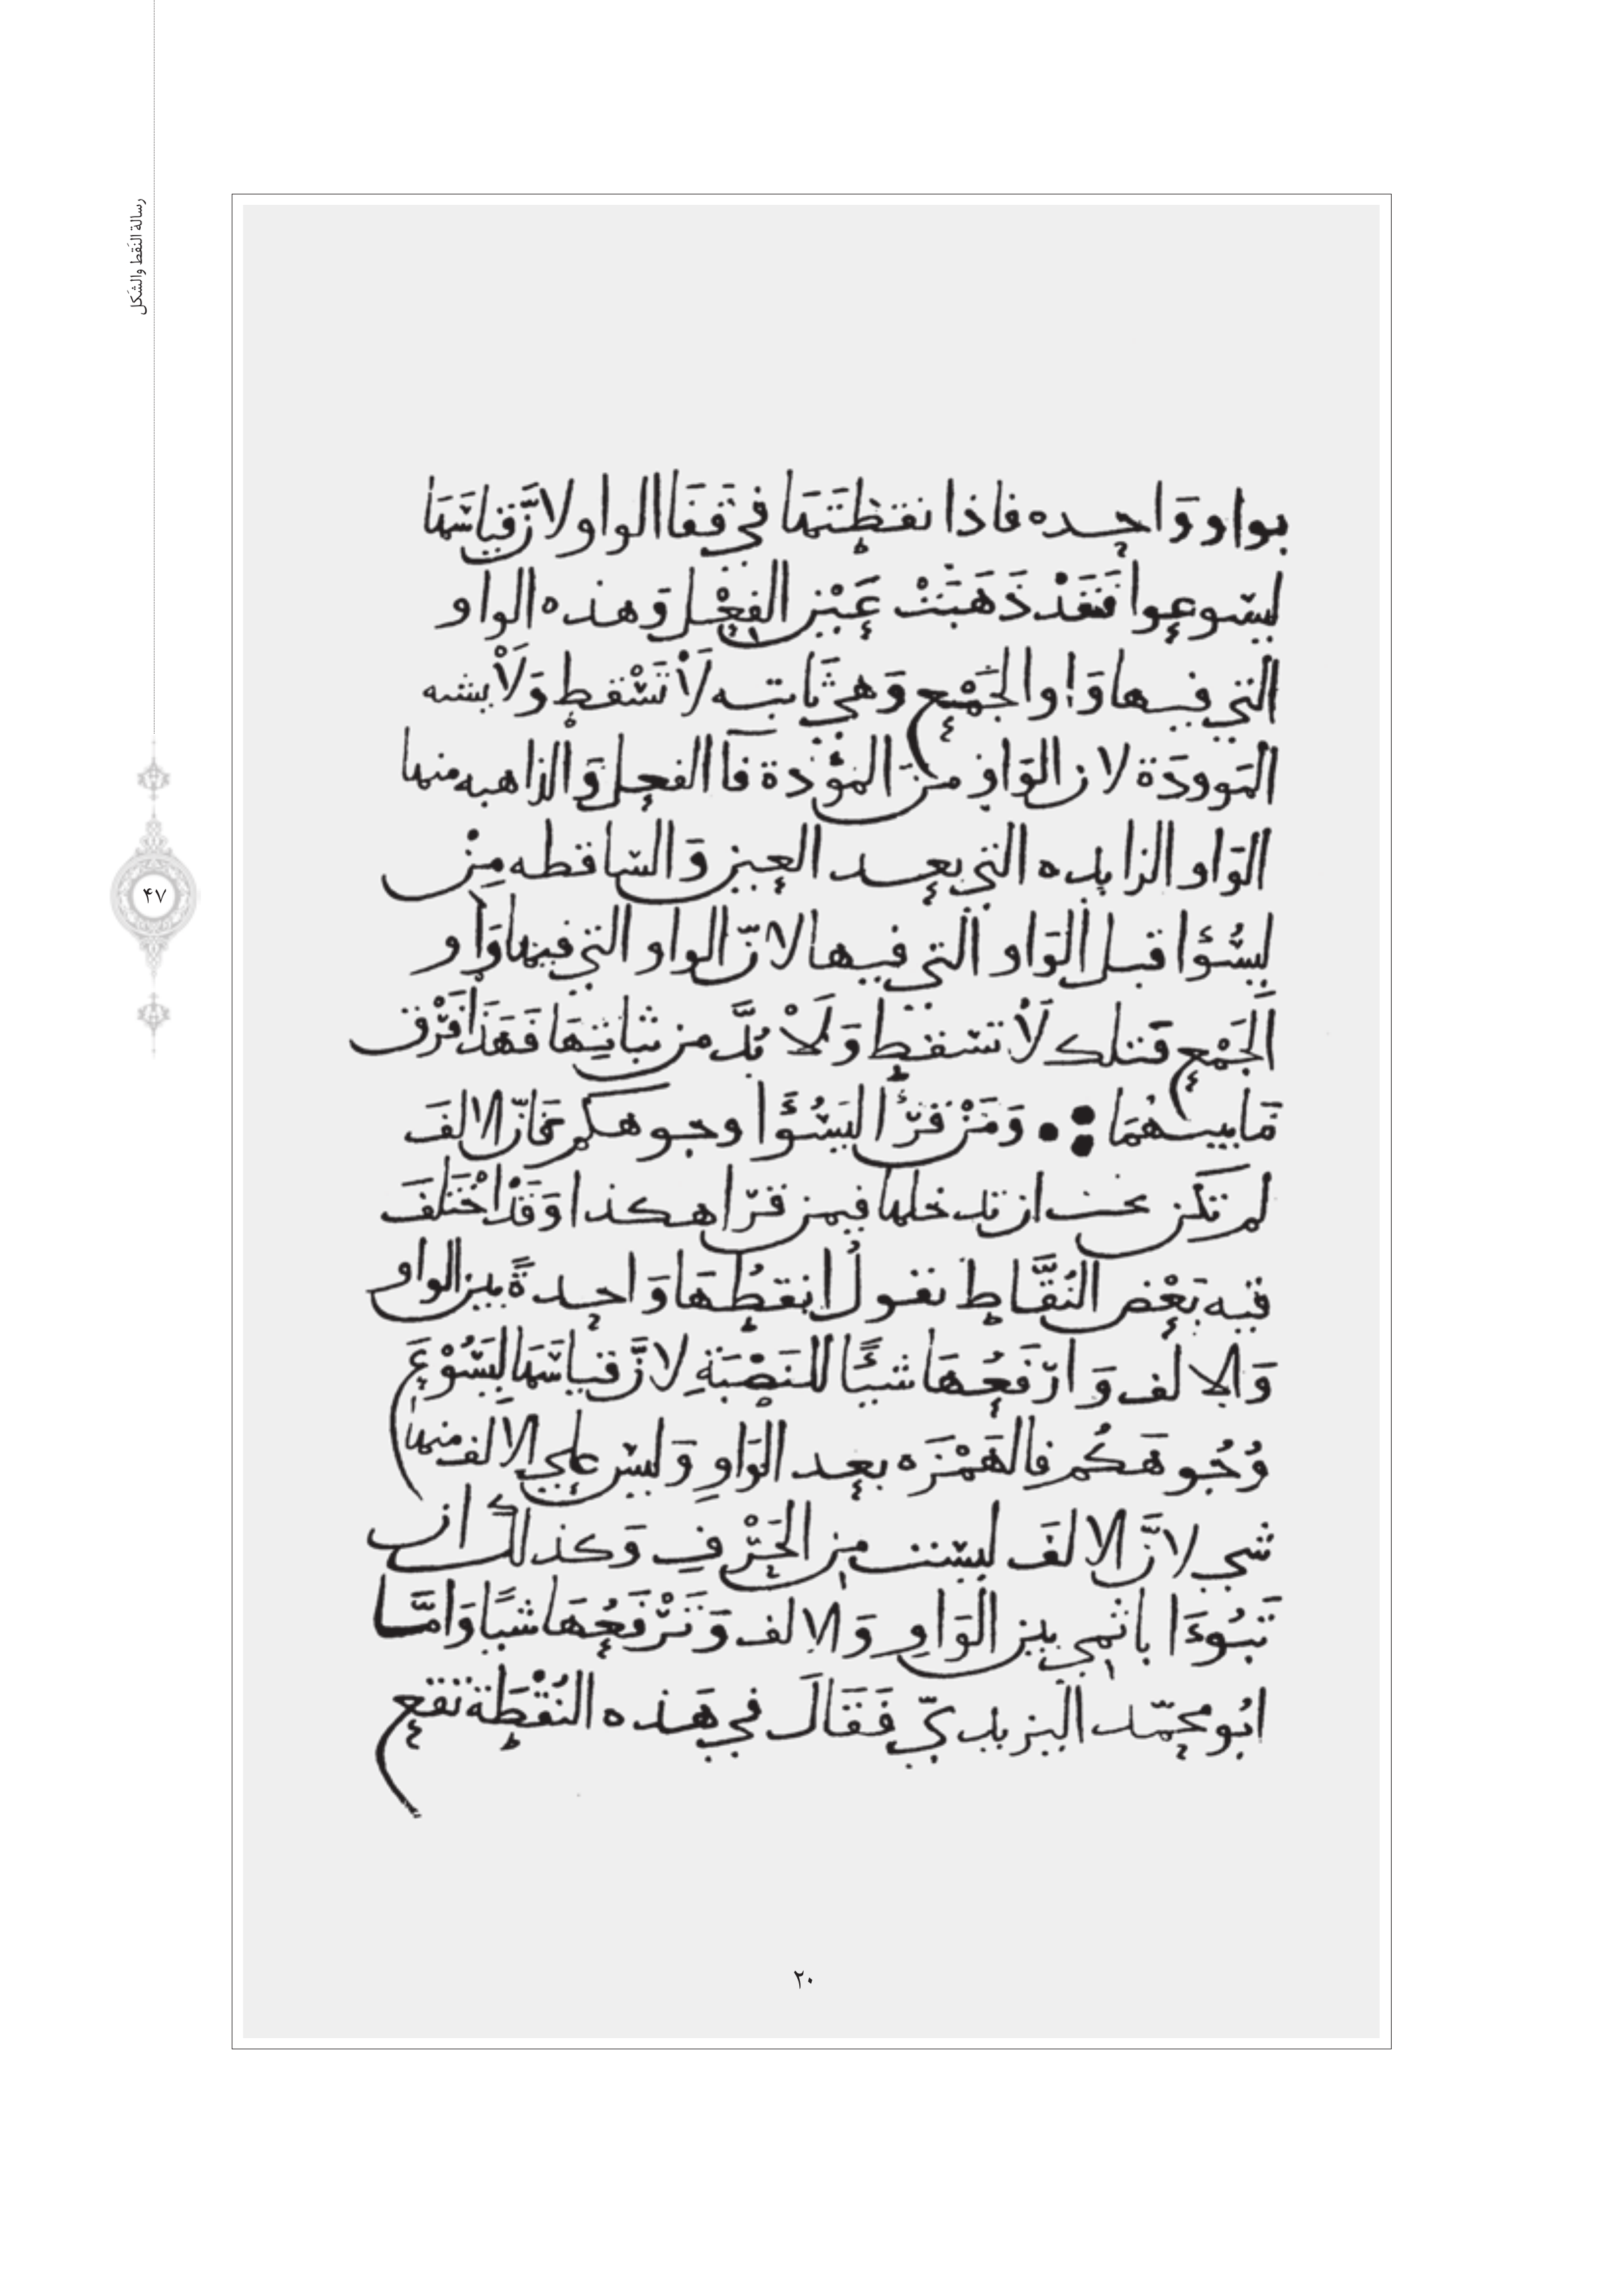 رسالة النَقط والشَكل
۴۷
بواو وَاحده فاذا نقطْتَهَا في قَفَا الواو لانَّ قياسَهَا
ليسُوعوا فَقَدْ ذَهَبَتْ عَيْن الفِعْل وَهذه الواو
التي فيها وَاو الجَمْع وَهي ثَابته لَا تسْقط وَلَا يشبه
المَوودَة لان الوَاو من المَوْدة فآ الفعل وَالذاهبه منها
الوَاو الزايده التي بعد العين وَالسَاقطه مِنْ
ليسُؤا قبل الوَاو التي فيها لانَّ الواو التي فيها وَاو
الجَمْع فتلك لَا تسْقط وَلَا بُدَّ من ثباتِهَا فَهَذَا فَرْق
مَا بينهُمَا وَمَنْ قَرَأ ليَسُؤَا وجوهكم فَانّ الالفَ
لم تكن تحت ان تدخلها فيمن قرَا هكذا وَقَدْ اخْتَلَفَ
فيه بَعْض النُقَّاط نقول انقطُهَا وَاحدةً بين الواو
وَالالف وَارْفَعُهَا شيئًا للنَصْبَةِ لانَّ قياسَهَا ليَسُوْعَ
وُجُوهَكُم فالهَمْزَه بعد الوَاوِ وَليسَ على الالف منها
شي لانَّ الالفَ ليسَت من الحَرْفِ وَكذلك ان
تَبُوءَا باثمي بين الوَاوِ وَالالف وَتَرْفَعُهَا شيًا وَامَّا
ابُو محمّد اليزيديّ فَقَالَ في هَذه النُقْطَة تقع
۲۰